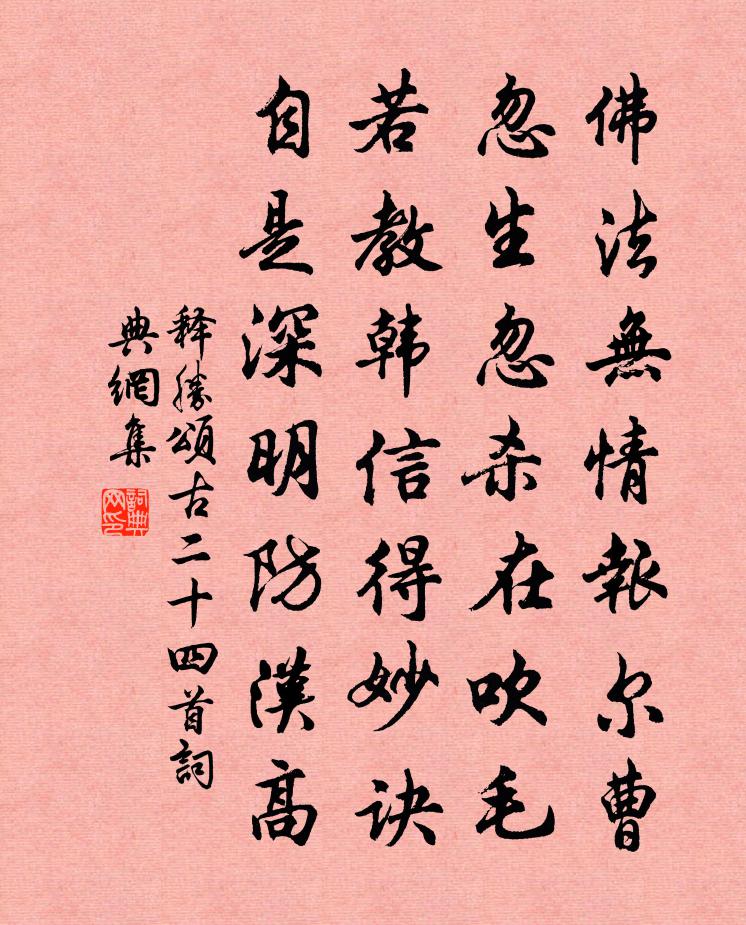 佛法無情報尔曹
忽生忽杀在吹毛
若教韩信得妙诀
自是深明防漢高
释勝頌古二十四首詞
典網集
詞典網印